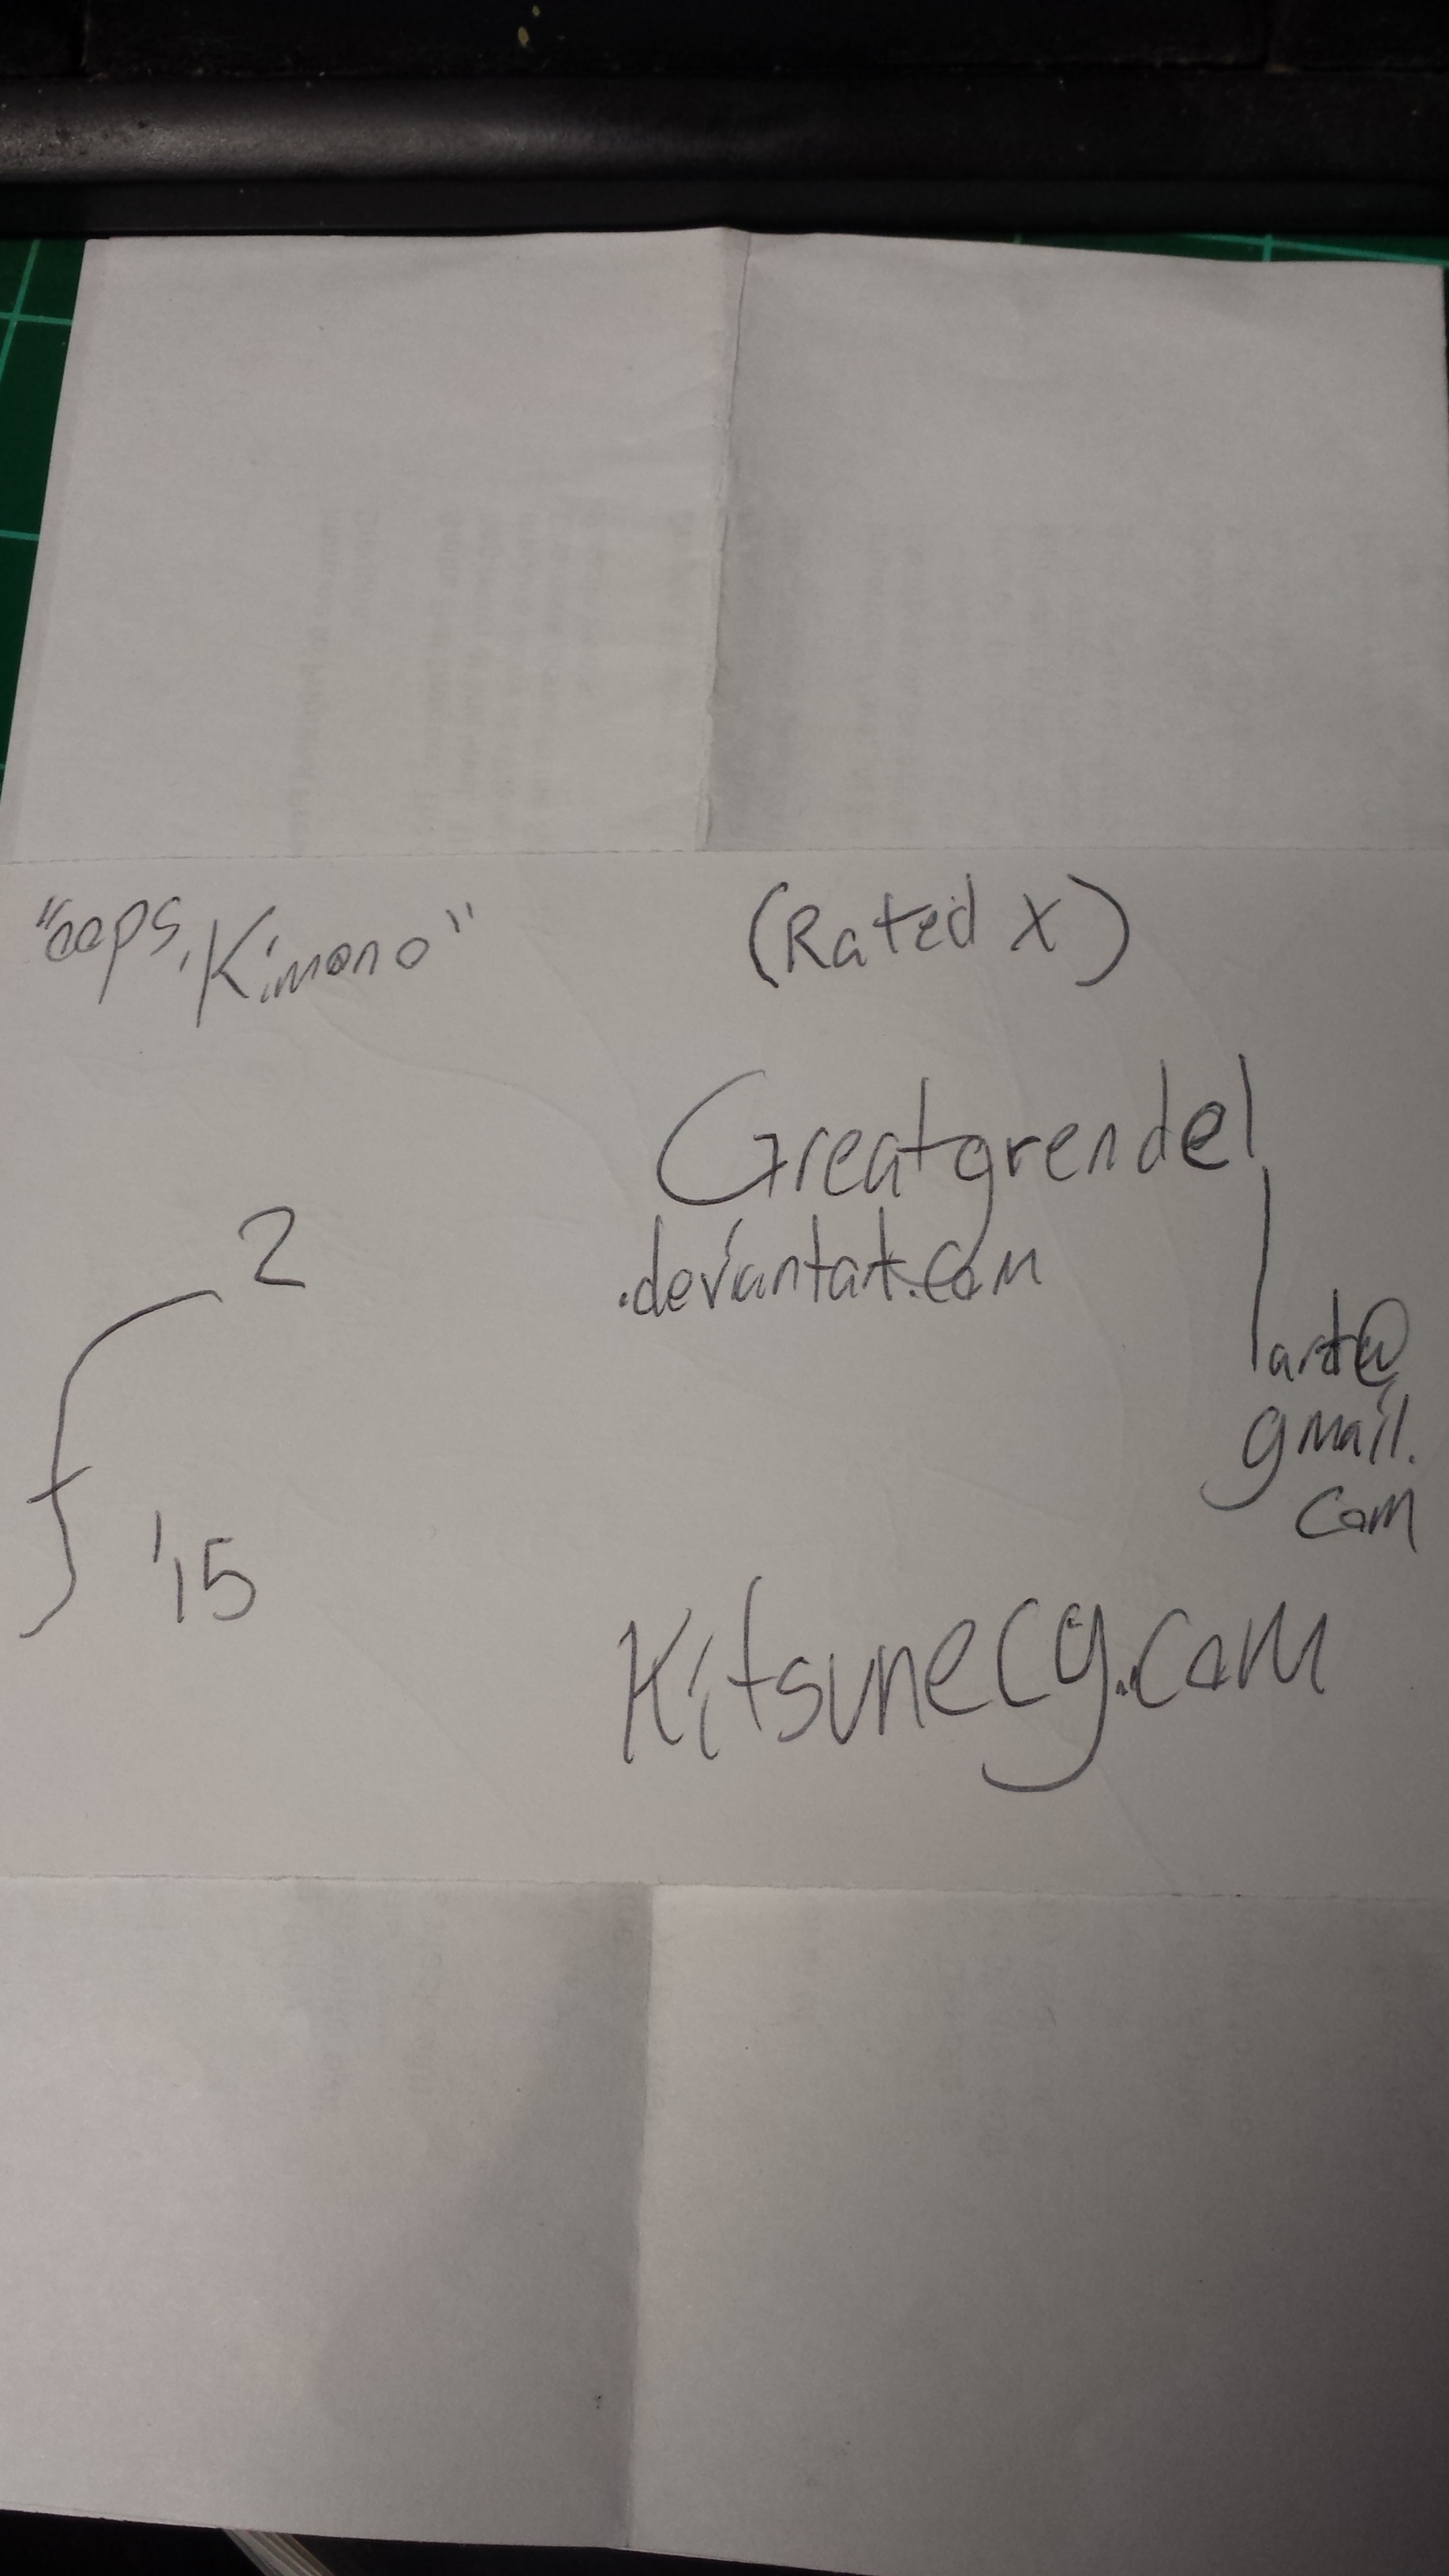 "oops, Kimono"
(Rated X)
Greatgrendel
.deviantart.com
art@
gmail.
com
2
'15
Kitsunecg.com